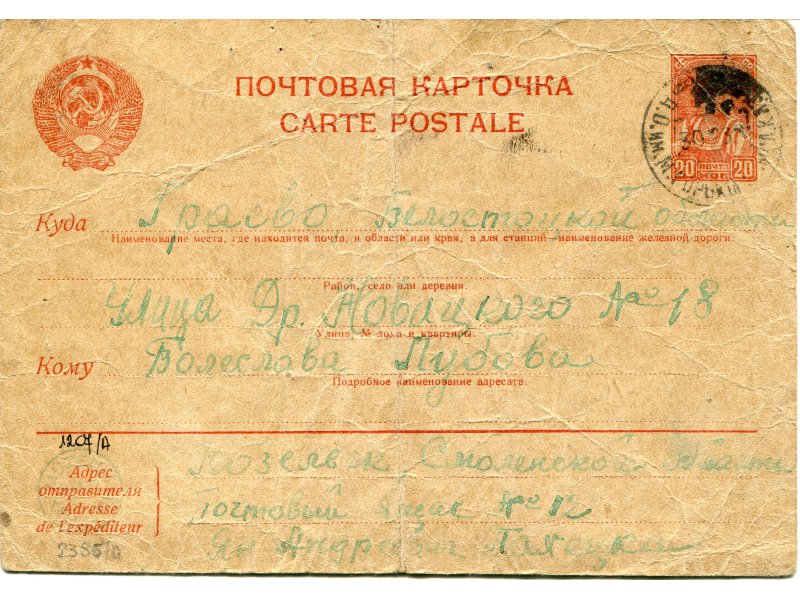 ПОЧТОВАЯ КАРТОЧКА
CARTE POSTALE
20 ПОЧТА 20
Куда Граево Белостоцкой области
Наименование места, где находится почта, и области или края, а для станций—наименование железной дороги.
Район, село или деревня.
Улица Др. № 18
Улица, № дома и квартиры.
Кому Болеслава
Подробное наименование адресата
1207/А
Адрес отправителя
Adresse de l'expéditeur
Козельск Смоленской области
Почтовый ящик № 12
Ян